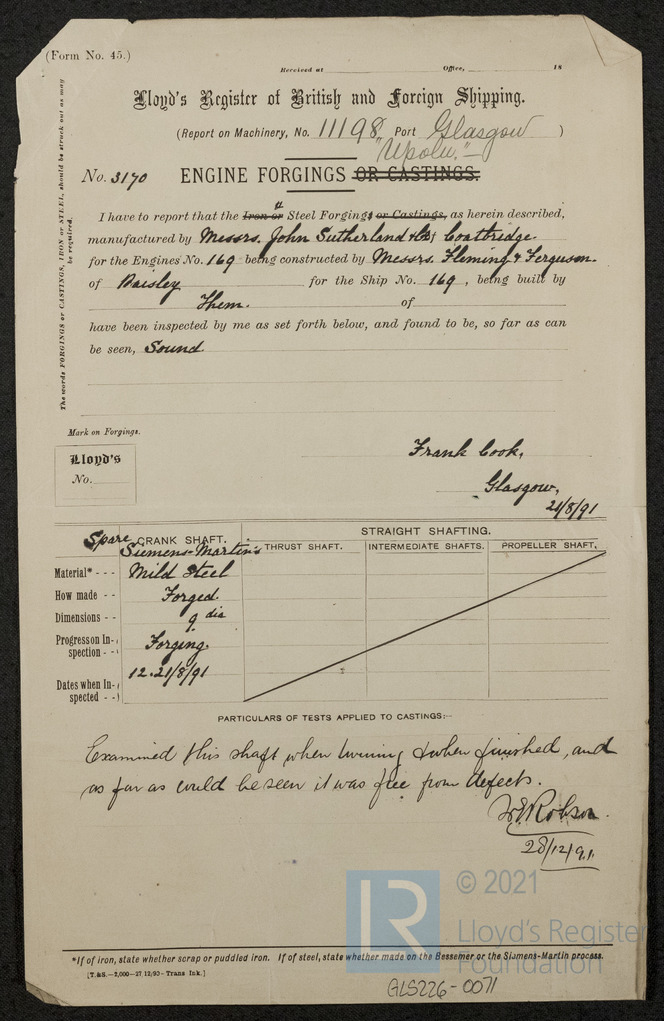 (Form No. 45.)
Received at Office, 18
Lloyd's Register of British and Foreign Shipping.
(Report on Machinery, No. 11198 Port Glasgow )
"Upolu."
No. 3170 ENGINE FORGINGS OR CASTINGS.
The words FORGINGS or CASTINGS, IRON or STEEL, should be struck out as may be required.
I have to report that the Iron or Steel Forgings or Castings, as herein described,
manufactured by Messrs. John Sutherland & Co, Coatbridge.
for the Engines No. 169 being constructed by Messrs. Fleming & Ferguson
of Paisley for the Ship No. 169, being built by
Them. of
have been inspected by me as set forth below, and found to be, so far as can
be seen, Sound.
Mark on Forgings.
Lloyd's
No.
Frank Cook,
Glasgow,
21/8/91
Spare CRANK SHAFT. STRAIGHT SHAFTING.
THRUST SHAFT. INTERMEDIATE SHAFTS. PROPELLER SHAFT,
Siemens-Martin's
Material* - - - Mild Steel
How made - - Forged.
Dimensions - - 9 dia
Progress on In-
spection - - Forging.
Dates when In-
spected - - 12.21/8/91
PARTICULARS OF TESTS APPLIED TO CASTINGS:—
Examined this shaft when turning & when finished, and
as far as could be seen it was free from defects.
Robson.
28/12/91.
*If of iron, state whether scrap or puddled iron. If of steel, state whether made on the Bessemer or the Siemens-Martin process.
[T.&S.—2,000—27/12/90—Trans Ink.]
LR
© 2021
Lloyd's Register
Foundation
GLS226-0071